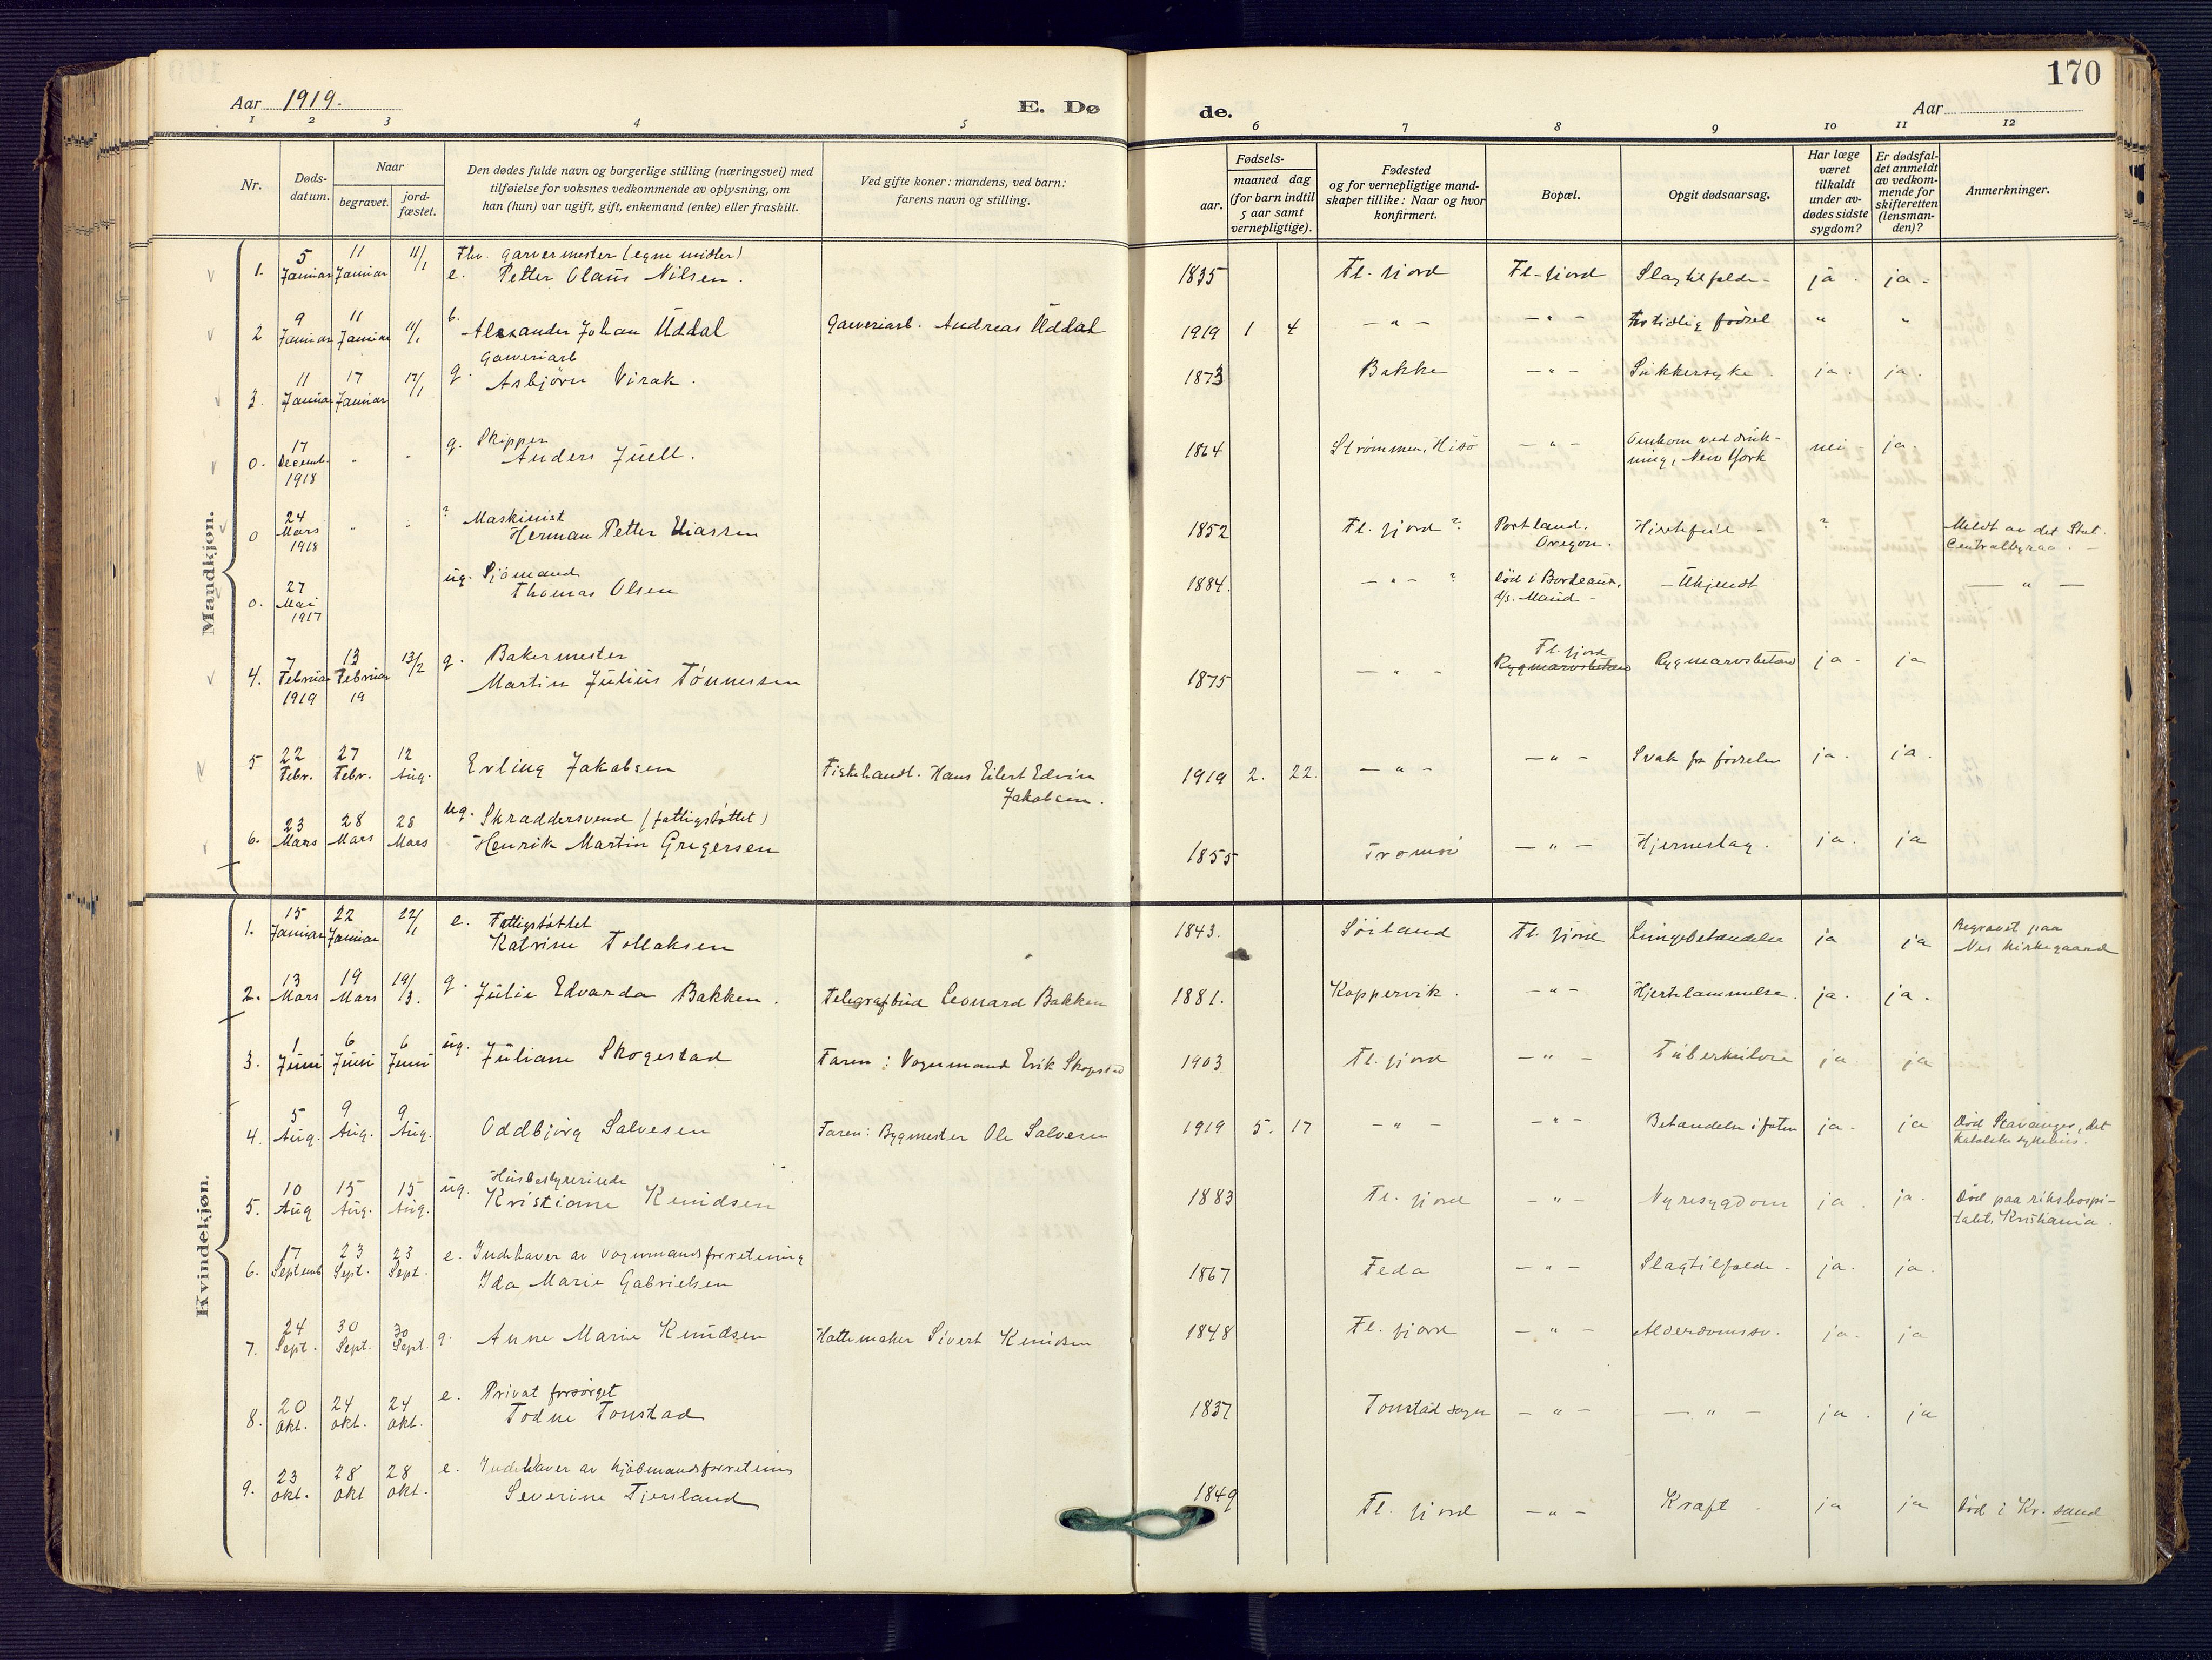 Aar 1919.
E. Dø
1 2 3 4 5
Nr.
Døds-
datum.
Naar
begravet.
jord-
fæstet.
Den dødes fulde navn og borgerlige stilling (næringsvei) med
tilføielse for voksnes vedkommende av oplysning, om
han (hun) var ugift, gift, enkemand (enke) eller fraskilt.
Ved gifte koner: mandens, ved barn:
farens navn og stilling.
170
de.
Aar
6 7 8 9 10 11 12
Fødsels-
aar.
maaned dag
(for barn indtil
5 aar samt
vernepligtige).
Fødested
og for vernepligtige mand-
skaper tillike: Naar og hvor
konfirmert.
Bopæl.
Opgit dødsaarsag.
Har læge
været
tilkaldt
under av-
dødes sidste
sygdom?
Er dødsfal-
det anmeldt
av vedkom-
mende for
skifteretten
(lensman-
den)?
Anmerkninger.
Mandkjøn.
1. 5 Januar 11 Januar 11/1 Fhv. garvermester (egne midler)
e. Petter Olaus Nilsen. 1835 Fl. fjord Fl-fjord Slagtilfelde - ja - ja -
2 9 Januar 11 Januar 11/1 b. Alexander Johan Uddal Garveriarb. Andreas Uddal 1919 1 4 - " - - " - For tidlig fødsel " "
3. 11 Januar 17 Januar 17/1 g. Garveriarb
Asbjörn Virak. 1873 Bakke - " - Sukkersyke. ja. ja.
0. 17 Decemb. 1918 " " g. Skipper
Anders Juell. 1864 Strømmen, Hisö - " - Omkom ved druk-
ning, New York nei - ja.
0 24 Mars 1918 " " ? Maskinist
Herman Petter Eliassen 1852 Fl. fjord ? Portland.
Oregon. Hjertefeil - ? Meldt av det Stat.
Centralbyraa. -
0. 27 Mai 1917 ug. Sjömand
Thomas Olsen 1884. - " - ? död i Bordeaux,
d/s. Maud - - Ukjendt — " —
4. 7 Februar 1919 13 Februar 19 13/2 g. Bakermester
Martin Julius Tönnessen 1875 — " - Fl. fjord
Rygmarvsbetænd Rygmarvsbetænd ja - ja
5 22 Febr. 27 Febr. 12 Aug. Erling Jakobsen Fiskehandl. Hans Eilert Edvin
Jakobsen. 1919 2. 22. - " - - " - Svak fra fødselen ja. ja.
6. 23 Mars 28 Mars 28 Mars ug. Skraddersvend (fattigstöttet)
Henrik Martin Gregersen 1855 Tromöi — " - Hjerneslag. ja. ja
Kvindekjøn.
1. 15 Januar 22 Januar 22/1 e. Fattigstöttet
Katrine Tollaksen 1843. Söiland Fl. fjord Lungebetændelse ja ja Begravet paa
Nes kirkegaard
2. 13 Mars 19 Mars 19/3. g. Julie Edvarda Bakken. Telegrafbud Leonard Bakken 1881. Koppervik. - " - Hjertelammelse. ja. ja.
3. 1 Juni 6 Juni 6 Juni ug. Juliane Skogestad Faren: Vognmand Erik Skogestad 1903 Fl. fjord - " - Tuberkulose ja ja
4. 5 Aug. 9 Aug. 9 Aug. Oddbjörg Salvesen Faren: Bygmester Ole Salvesen 1919 5. 17 - " - - " - Betændelse i foten ja - ja Död Stavanger, det
katolske sykehus.
5. 10 Aug 15 Aug. 15 Aug. ug. Husbestyrerinde
Kristiane Knudsen 1883 Fl. fjord - " - Nyresygdom ja. ja. Död paa rikshospi-
talet, Kristiania.
6. 17 Septemb 23 Sept. 23 Sept. e. Indehaver av vognmandsforretning
Ida Marie Gabrielsen 1867 Feda - " - Slagtilfelde - ja. ja.
7. 24 Sept. 30 Sept. 30 Sept. g. Anne Marie Knudsen Hattemaker Sivert Knudsen 1848 Fl. fjord - " - Alderdomssv. ja. ja
8. 20 Okt. 24 Okt. 24 Okt. e. Privat forsörget
Todne Tonstad 1837 Tonstad sogn - " - — " - ja. ja
9. 23 Okt. 28 Okt 28 Okt. e. Indehaver av kjöbmandsforretning
Severine Tjersland 1849 Fl. fjord - " - Kræft ja ja död i Kr. sand